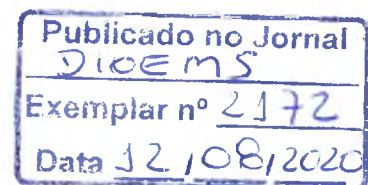 Publicado no Jornal
DIOEMS
Exemplar nº 2172
Data 12/08/2020